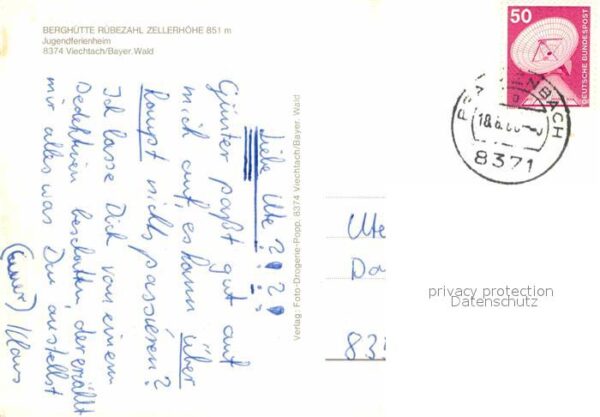 BERGHÜTTE RÜBEZAHL ZELLERHÖHE 851 m
Jugendferienheim
8374 Viechtach/Bayer. Wald
Liebe Ute ?!?!
Günter paßt gut auf
mich auf, es kann über-
haupt nichts passieren?
Ich lasse Dich von einem
Dedektiven beschatten, der erzählt
mir alles was Du anstellst
(immer) Klaus
Verlag: Foto-Drogerie-Popp, 8374 Viechtach/Bayer. Wald
50
DEUTSCHE BUNDESPOST
BACH
8371
Ute
Da
privacy protection
Datenschutz
83